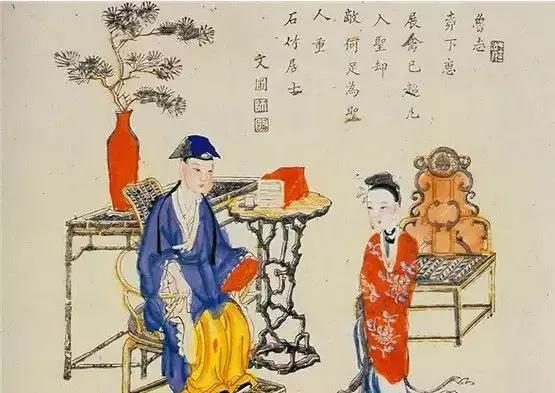 魯
下惠
展禽已超凡
入聖却
敵何足為聖
人重
石竹居士
文